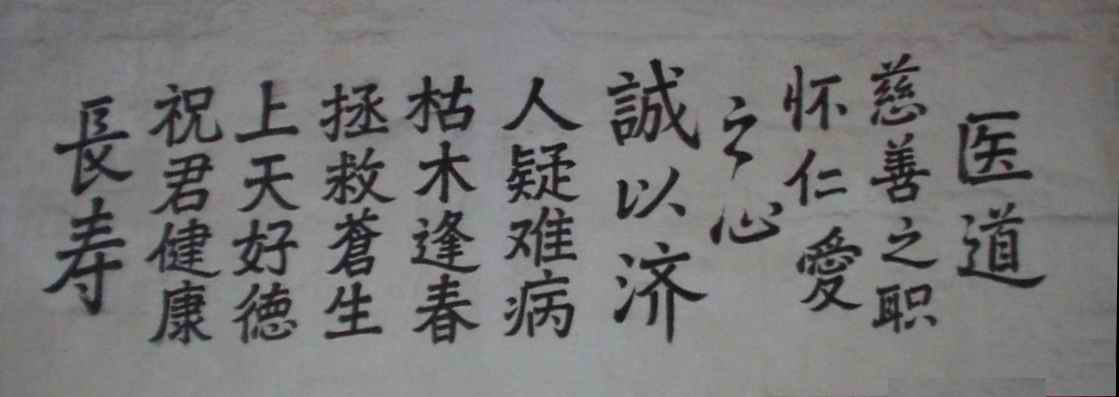 医道
慈善之职
怀仁愛
之心
誠以济
人疑难病
枯木逢春
拯救蒼生
上天好徳
祝君健康
長寿